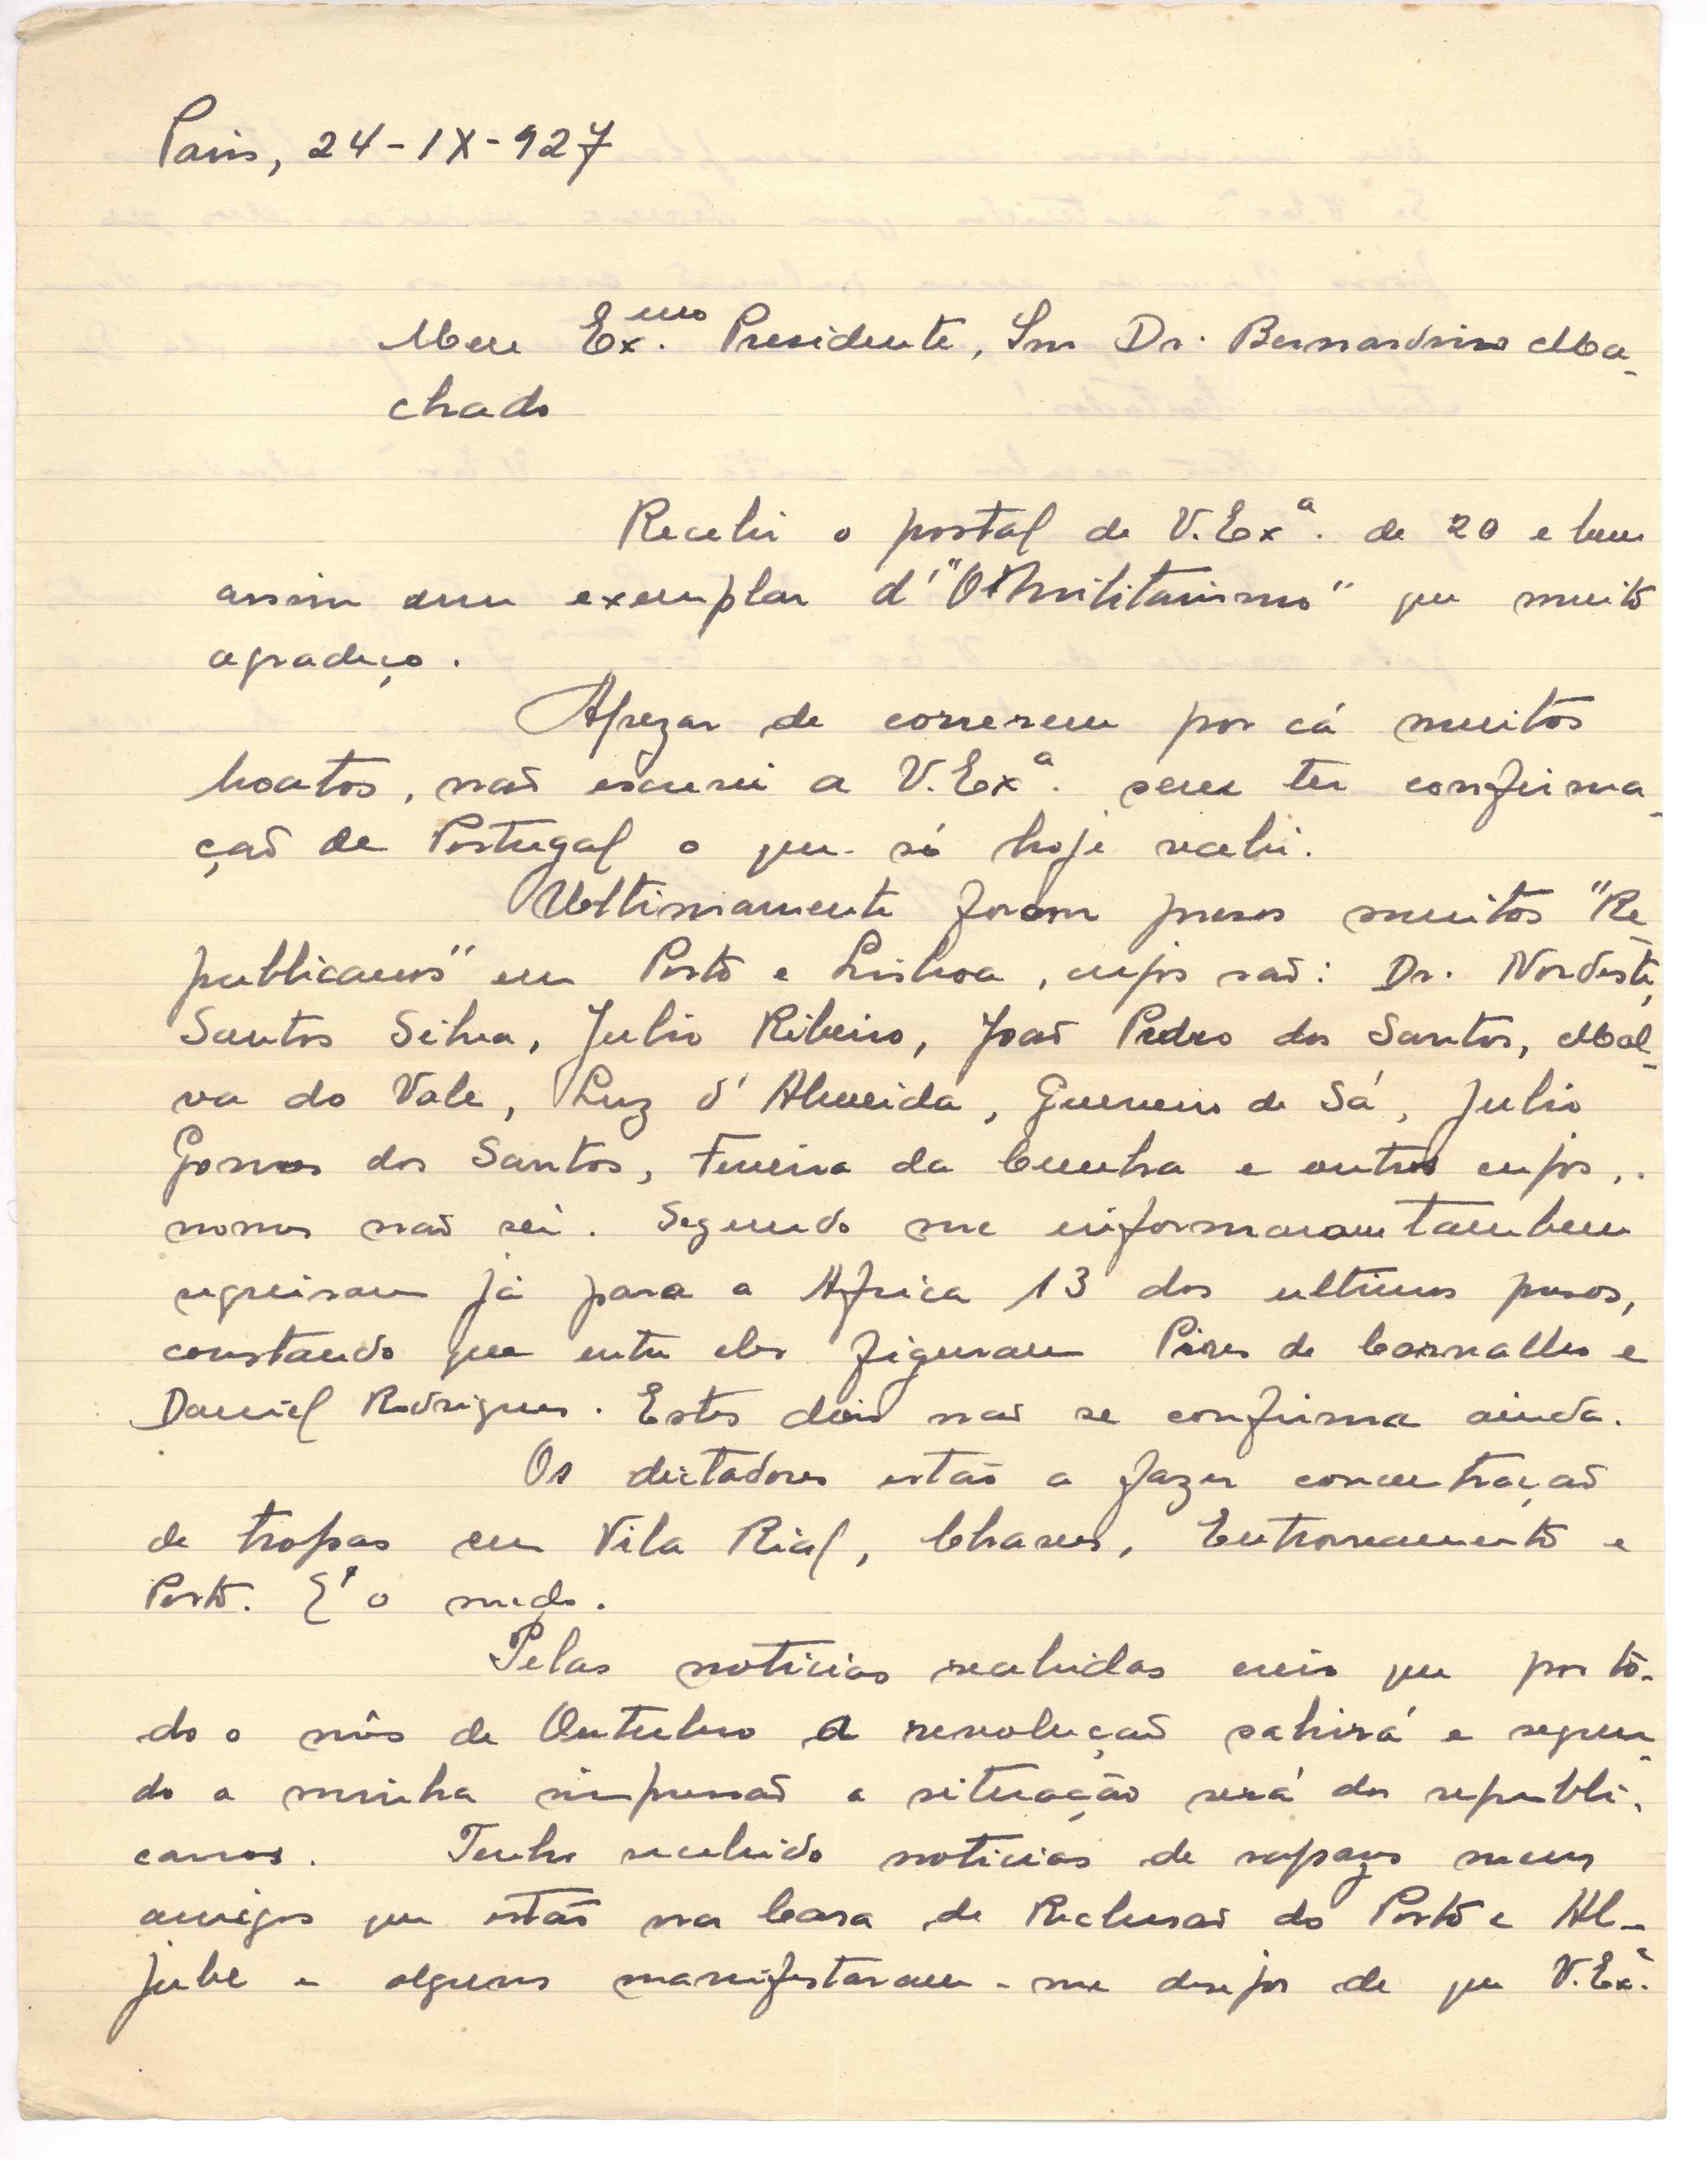 Paris, 24-IX-927
Meu Ex.mo Presidente, Snr Dr. Bernardino Ma-
chado
Recebi o postal de V. Exa. de 20 e bem
assim um exemplar d'"O Militarismo" que muito
agradeço.
Apezar de correrem por cá muitos
boatos, naõ escrevi a V. Exa. sem ter confirma-
çaõ de Portugal o que só hoje recebi.
Ultimamente foram presos muitos "Re-
publicanos" em Porto e Lisboa, cujos saõ: Dr. Nordeste,
Santos Silva, Julio Ribeiro, Joaõ Pedro dos Santos, Mal-
va do Vale, Luz d'Almeida, Guerreiro de Sá, Julio
Gomes dos Santos, Ferreira da Cunha e outros cujos
nomes naõ sei. Segundo me informaram tambem
seguiram já para a Africa 13 dos ultimos presos,
constando que entre eles figuram Pires de Carvalho e
Daniel Rodrigues. Estes dois naõ se confirma ainda.
Os dictadores estaõ a fazer concentraçaõ
de tropas em Vila Rial, Chaves, Entroncamento e
Porto. E' o medo.
Pelas noticias recebidas creio que por to-
do o mês de Outubro a revoluçaõ sahirá e segun-
do a minha impressaõ a situação será dos republi-
canos. Tenho recebido noticias de rapazes meus
amigos que estaõ na Casa de Reclusaõ do Porto e Al-
jube e alguns manifestaram-me desejos de que V. Exa.